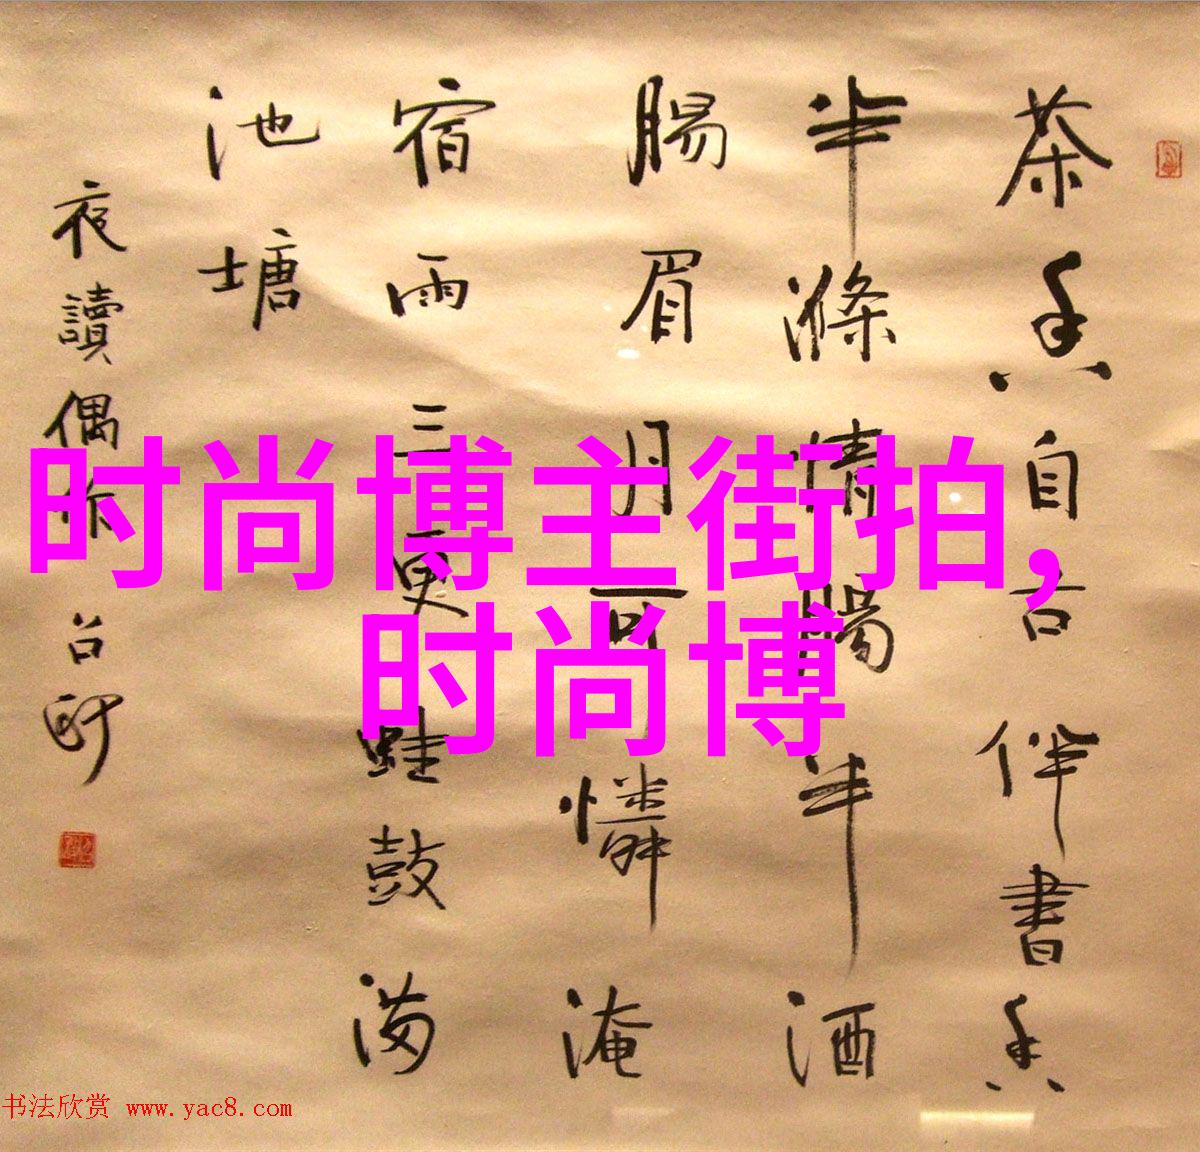 茶香自古伴書香
半滌情腸半酒
腸眉月可憐淹
宿雨三更蛙鼓满
池塘
夜讀偶作
时尚博主街拍,
时尚博
书法欣赏 www.yac8.com